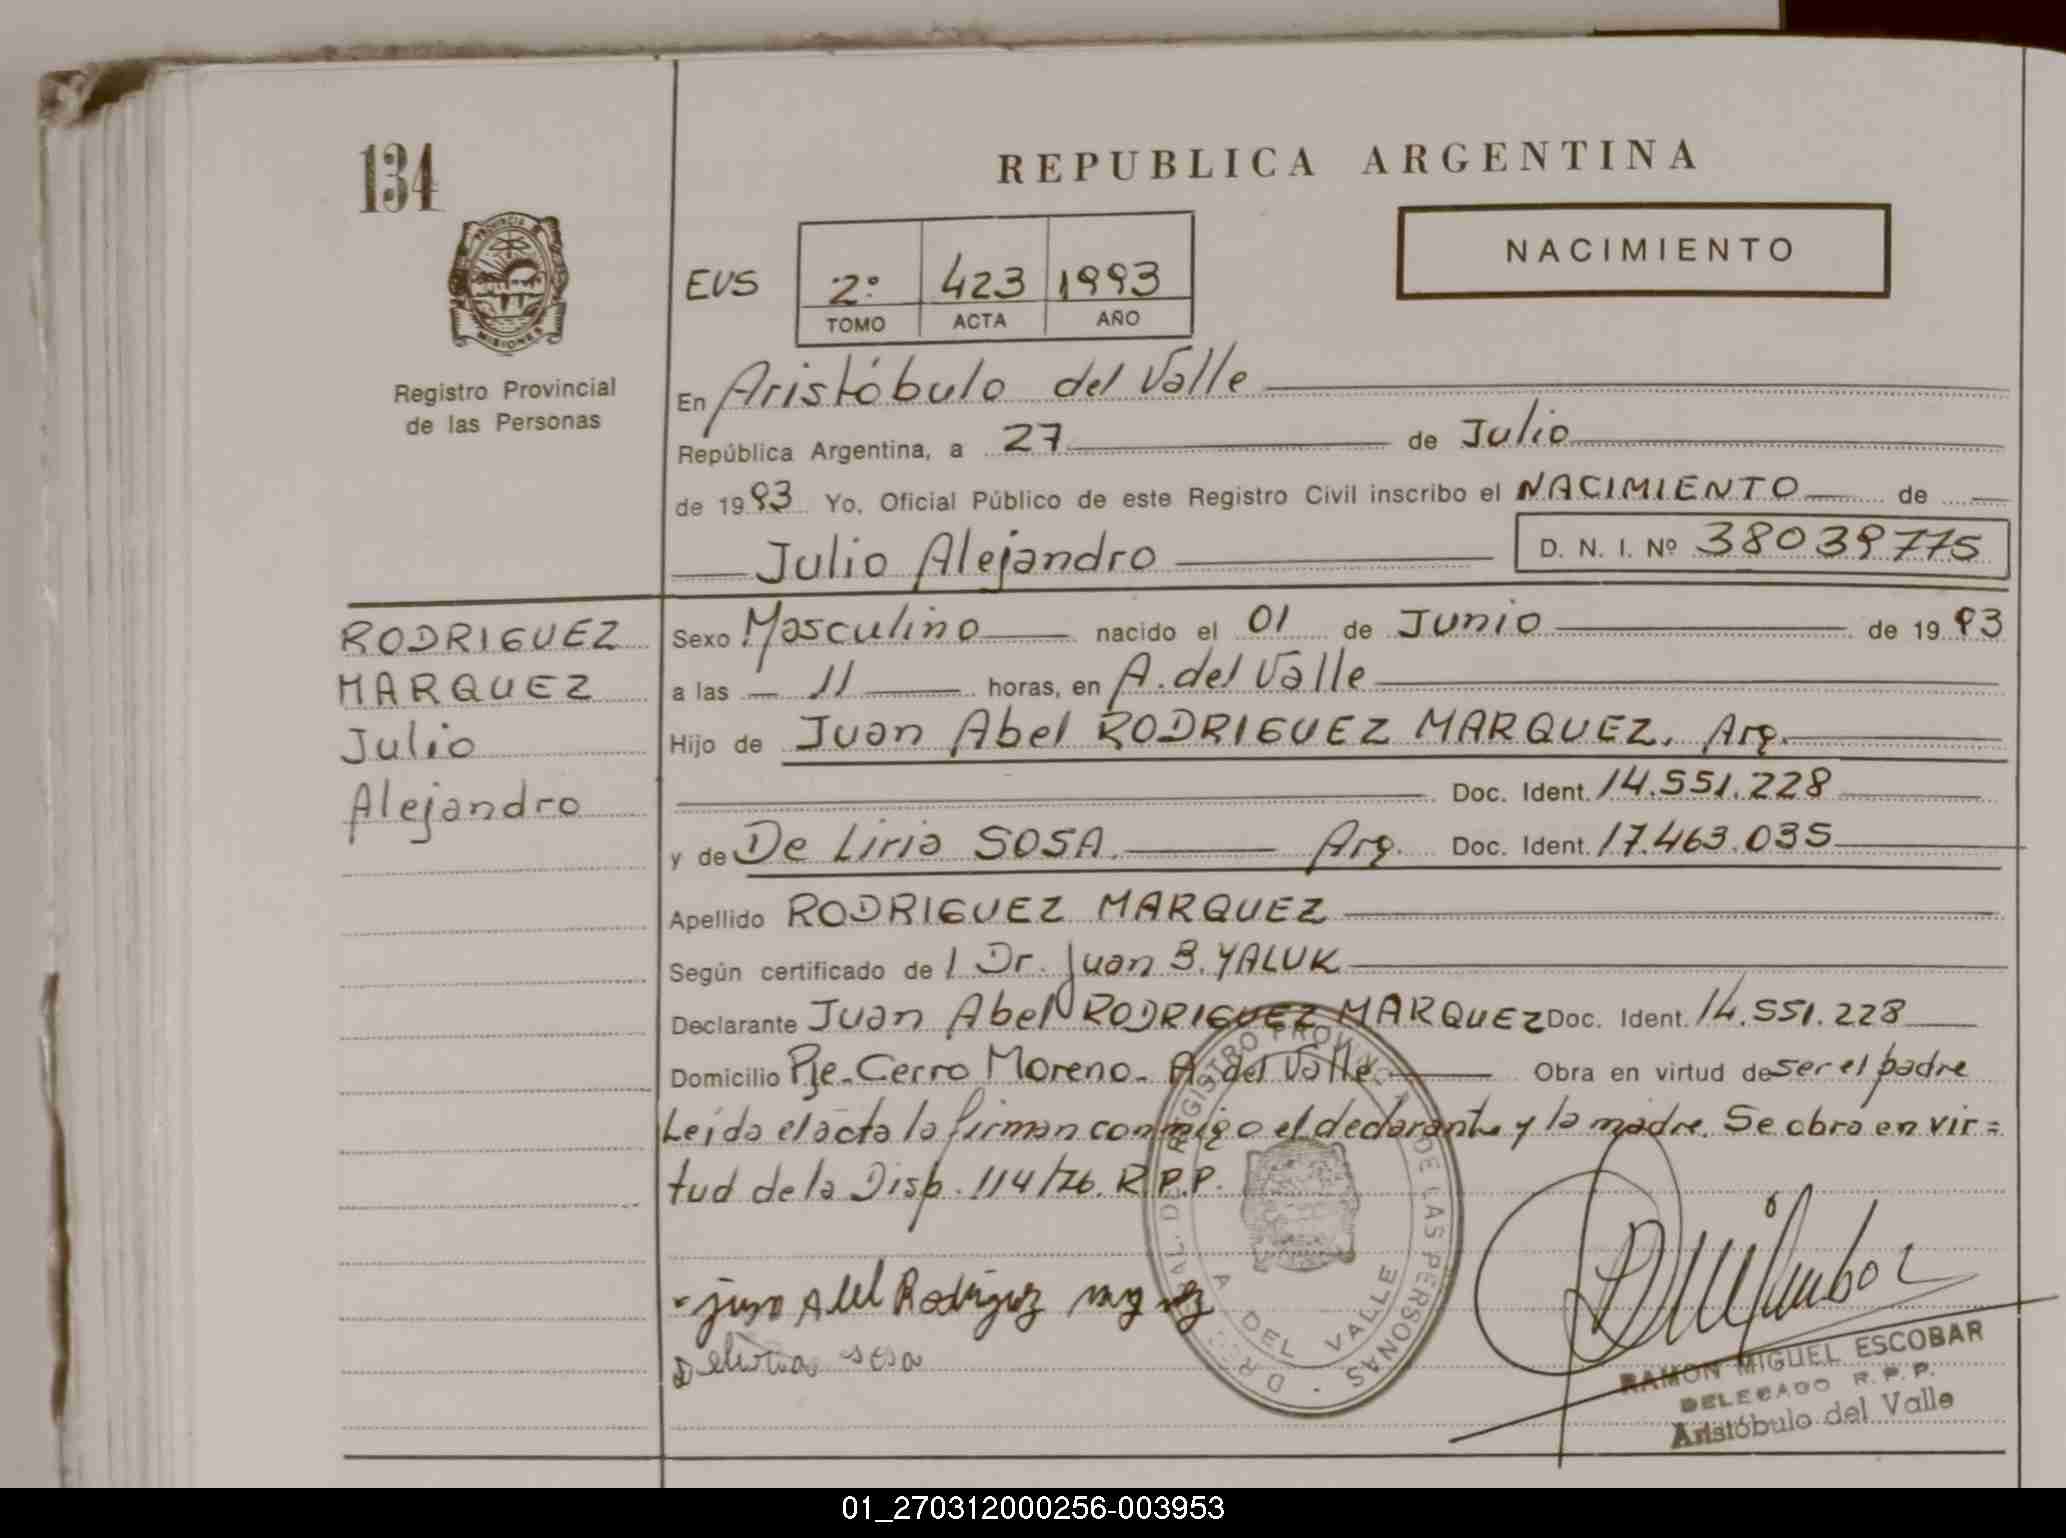 134
REPUBLICA ARGENTINA
NACIMIENTO
PROVINCIA D
MISIONES
EUS 2º 423 1993
TOMO ACTA AÑO
Registro Provincial
de las Personas
En Aristóbulo del Valle
República Argentina, a 27 de Julio
de 1993 Yo, Oficial Público de este Registro Civil inscribo el NACIMIENTO de
Julio Alejandro D. N. I. Nº 38039775
RODRIGUEZ
MARQUEZ
Julio
Alejandro
Sexo Masculino nacido el 01 de Junio de 1993
a las 11 horas, en A. del Valle
Hijo de Juan Abel RODRIGUEZ MARQUEZ. Arg.
Doc. Ident. 14.551.228
y de De Liria SOSA. Arg. Doc. Ident. 17.463.035
Apellido RODRIGUEZ MARQUEZ
Según certificado de l Dr. Juan B. YALUK
Declarante Juan Abel RODRIGUEZ MARQUEZ Doc. Ident. 14.551.228
Domicilio Pje. Cerro Moreno - A. del Valle Obra en virtud de ser el padre
Leída el acta la firman conmigo el declarante y la madre. Se obra en vir=
tud de la Disp. 114/76. R.P.P.
REGISTRO PROVINCIAL DE LAS PERSONAS
A DEL VALLE
Abel Rodriguez
sosa
RAMON MIGUEL ESCOBAR
DELEGADO R. P. P.
Aristóbulo del Valle
01_270312000256-003953